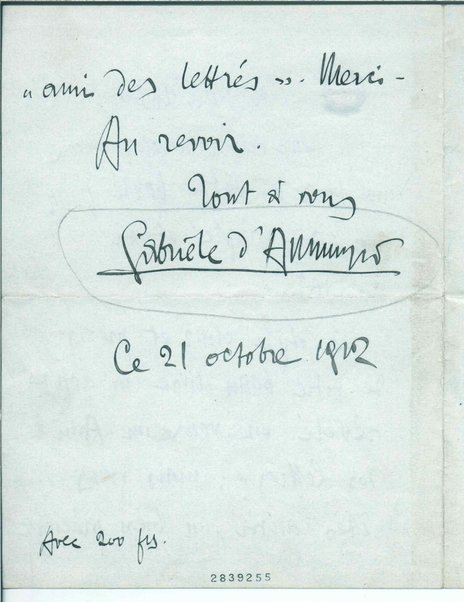 « ami des lettrés ». Merci -
Au revoir.
Tout à vous
Gabriele d'Annunzio
Ce 21 octobre 1912
Avec 200 frs.
2839255